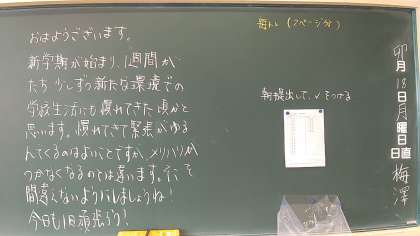 おはようございます。
新学期が始まり、1週間が
たち少しずつ新たな環境での
学校生活にも慣れてきた頃かと
思います。慣れてきて緊張がゆる
んでくるのはよいことですが、メリハリが
つかなくなるのとは違います。そこを
間違えないようにしましょうね！
今日も1日頑張ろう！
毎トレ（2ページ分）
朝提出して、✓をつける
卯月18日月曜日
日直 梅澤